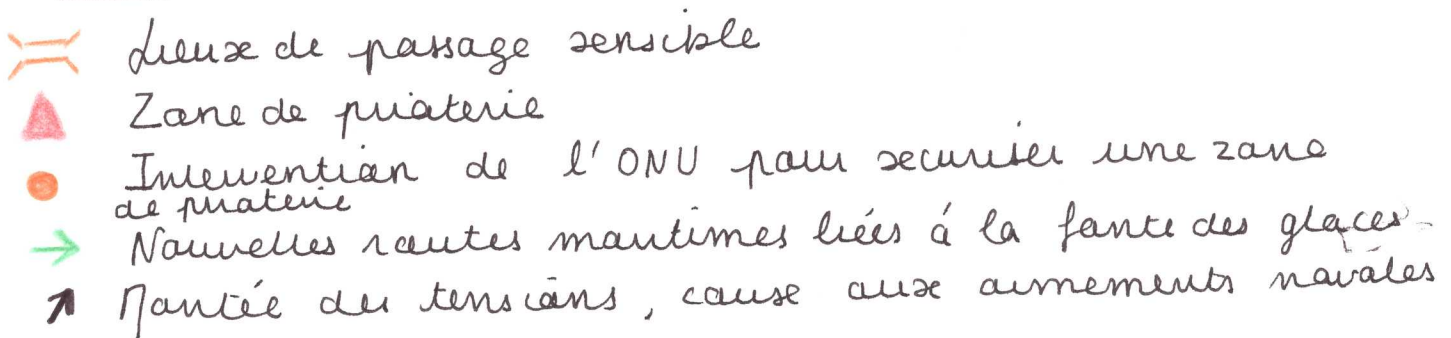 Lieux de passage sensible
Zone de piraterie
Intervention de l'ONU pour securiser une zone
de piraterie
Nouvelles routes maritimes liées à la fonte des glaces
Montée des tensions, cause aux armements navales